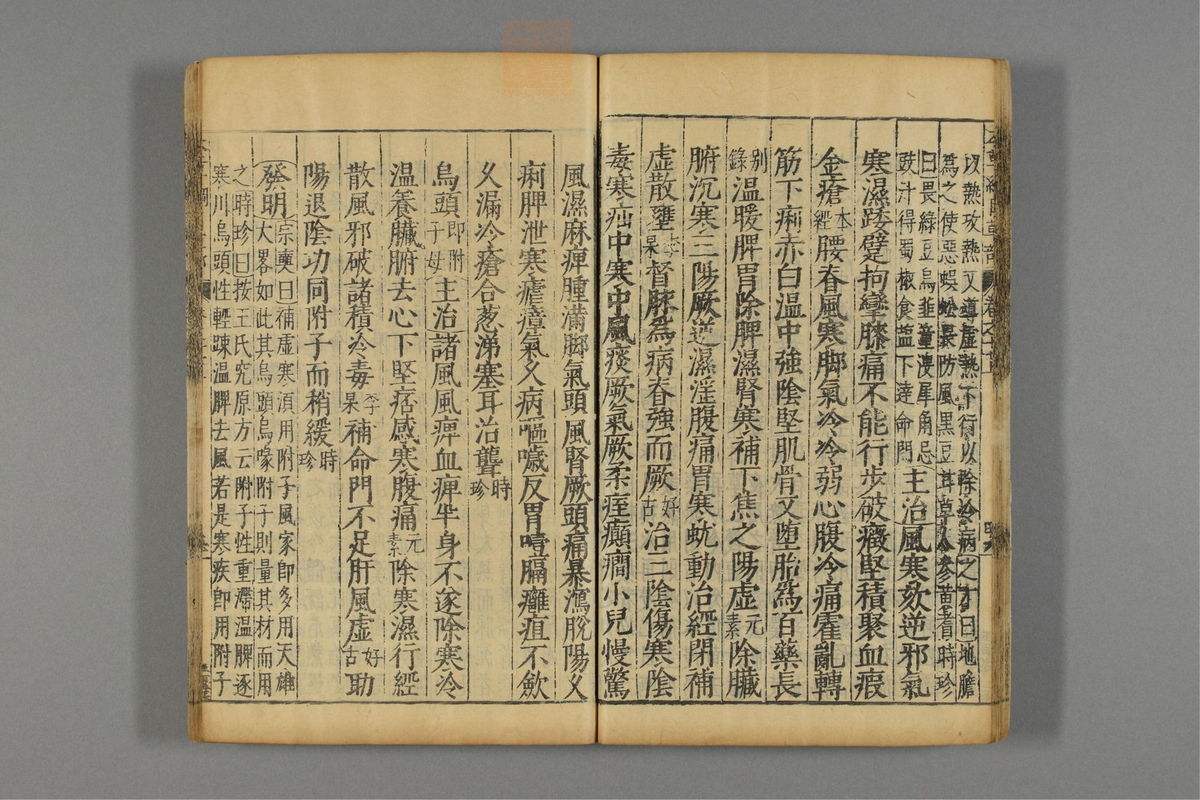 以熱攻熱又導虛熱下行以除冷病之才曰地膽
爲之使惡蜈蚣畏防風黑豆甘草人參黃耆時珍
曰畏綠豆烏韭童溲犀角忌
豉汁得蜀椒食鹽下達命門
主治風寒欬逆邪氣
寒濕踒躄拘攣膝痛不能行步破癥堅積聚血瘕
金瘡本經腰脊風寒脚氣冷冷弱心腹冷痛霍亂轉
筋下痢赤白溫中強陰堅肌骨又墮胎爲百藥長
別錄溫暖脾胃除脾濕腎寒補下焦之陽虛元素除臟
腑沉寒三陽厥逆濕淫腹痛胃寒蚘動治經閉補
虛散壅李杲督脉爲病脊強而厥好古治三陰傷寒陰
毒寒疝中寒中風痰厥氣厥柔痓癲癇小兒慢驚
風濕麻痺腫滿脚氣頭風腎厥頭痛暴瀉脫陽久
痢脾泄寒瘧瘴氣久病嘔噦反胃噎膈癰疽不斂
久漏冷瘡合葱涕塞耳治聾時珍
烏頭即附子母主治諸風風痺血痺半身不遂除寒冷
溫養臟腑去心下堅痞感寒腹痛元素除寒濕行經
散風邪破諸積冷毒李杲補命門不足肝風虛好古助
陽退陰功同附子而稍緩時珍
發明宗奭曰補虛寒須用附子風家即多用天雄
大畧如此其烏頭烏喙附子則量其材而用
之時珍曰按王氏究原方云附子性重滯溫脾逐
寒川烏頭性輕疎溫脾去風若是寒疾即用附子